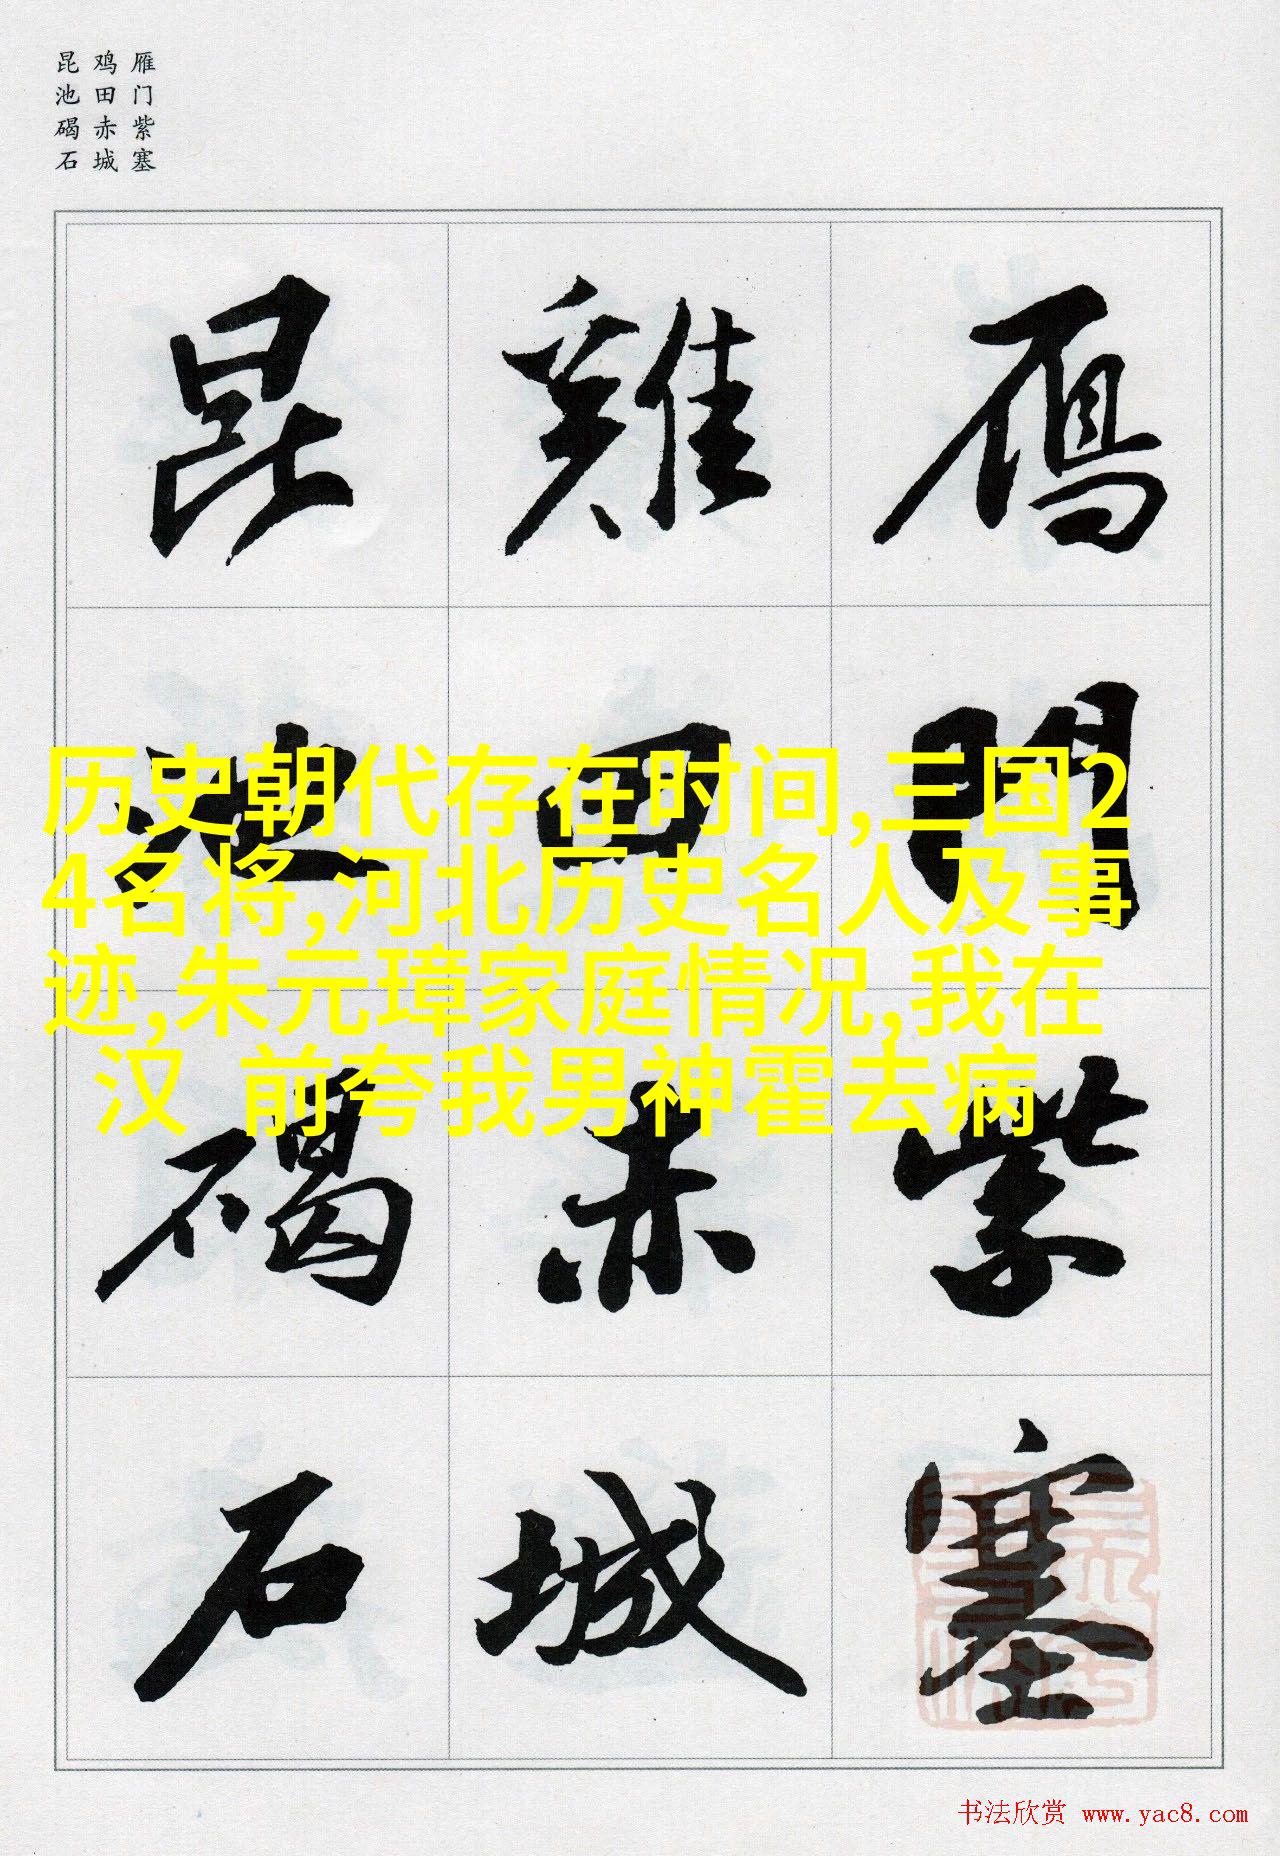 雁门紫塞
鸡田赤城
昆池碣石
鴈門紫塞
雞田赤城
昆池碣石
历史朝代存在时间,三国2
4名将,河北历史名人及事
迹,朱元璋家庭情况,我在
汉 前夸我男神霍去病
书法欣赏 www.yac8.com